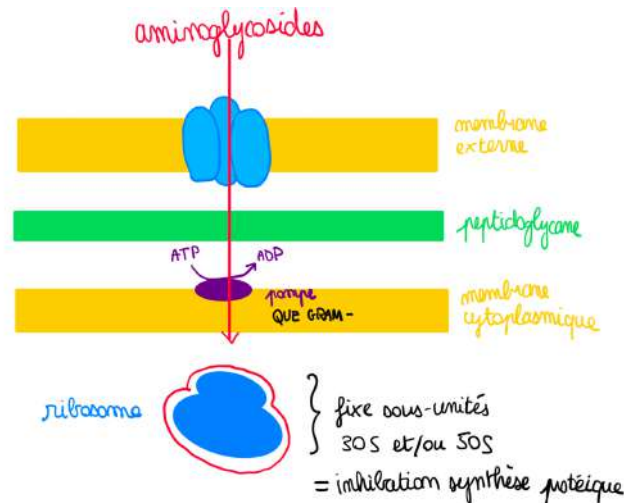 aminoglycosides
membrane
externe
peptidoglycane
ATP ADP
pompe
QUE GRAM -
membrane
cytoplasmique
ribosome
fixe sous-unités
30S et/ou 50S
= inhibation synthèse protéique